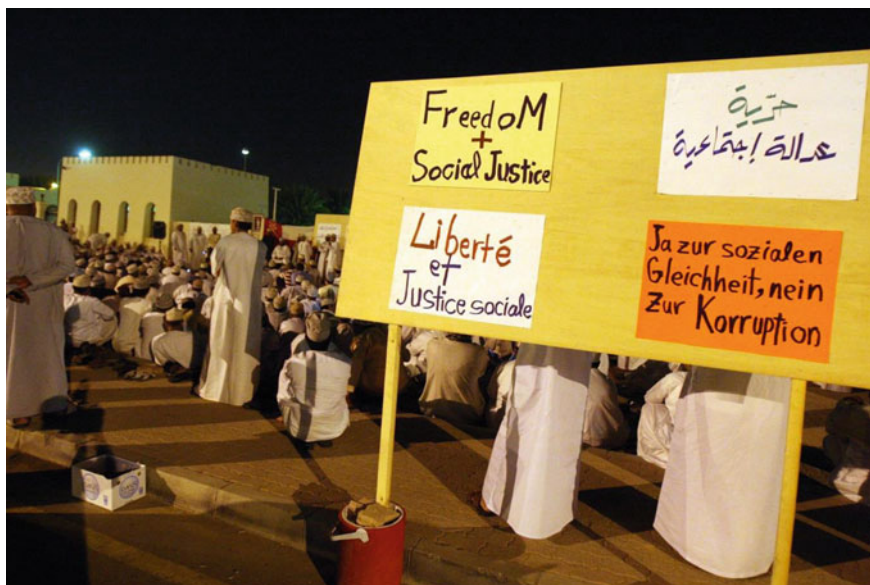 FreedoM
+
Social Justice
حرّية
عدالة إجتماعية
Liberté
et
Justice sociale
Ja zur sozialen
Gleichheit, nein
Zur Korruption